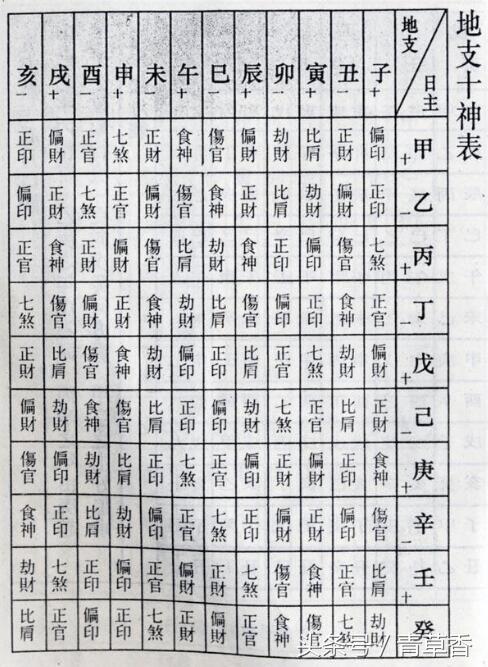 地支十神表
地支 日主
子+ 丑一 寅+ 卯一 辰+ 巳一 午+ 未一 申+ 酉一 戌+ 亥一
甲+ 偏印 正財 比肩 劫財 偏財 傷官 食神 正財 七煞 正官 偏財 正印
乙一 正印 偏財 劫財 比肩 正財 食神 傷官 偏財 正官 七煞 正財 偏印
丙+ 七煞 傷官 偏印 正印 食神 劫財 比肩 傷官 偏財 正財 食神 正官
丁一 正官 食神 正印 偏印 傷官 比肩 劫財 食神 正財 偏財 傷官 七煞
戊+ 偏財 劫財 七煞 正官 比肩 正印 偏印 劫財 食神 傷官 比肩 正財
己一 正財 比肩 正官 七煞 劫財 偏印 正印 比肩 傷官 食神 劫財 偏財
庚+ 食神 正印 偏財 正財 偏印 正官 七煞 正印 比肩 劫財 偏印 傷官
辛一 傷官 偏印 正財 偏財 正印 七煞 正官 偏印 劫財 比肩 正印 食神
壬+ 比肩 正官 食神 傷官 七煞 正財 偏財 正官 偏印 正印 七煞 劫財
癸 劫財 七煞 傷官 食神 正官 偏財 正財 七煞 正印 偏印 正官 比肩
头条号 / 青草香